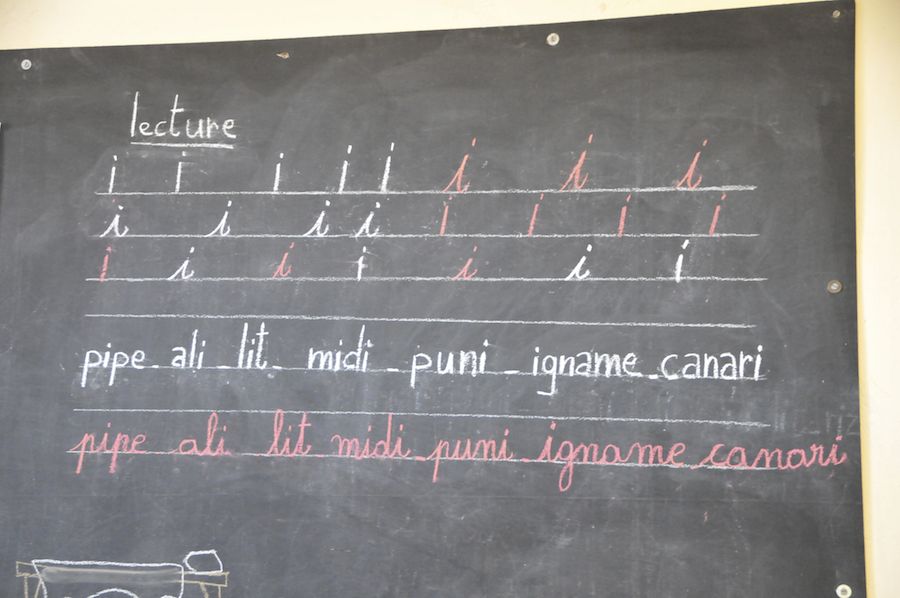 lecture
i i i i i i i i
i i i i i i i i
i i i i i i i
pipe - ali - lit - midi - puni - igname - canari
pipe ali lit midi - puni - igname - canari